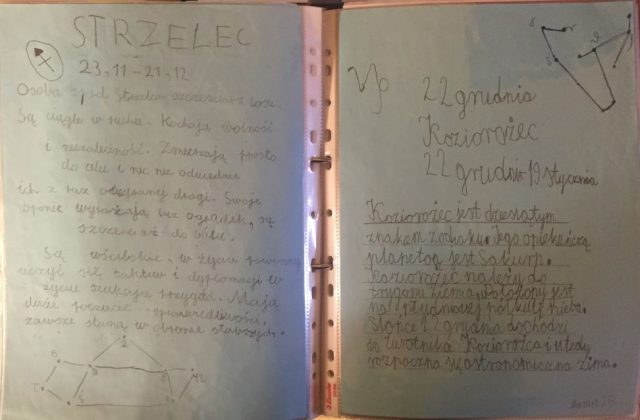 STRZELEC
23,11-21,12
Osoba Strzelca szczęściarz losu.
Są ciągle w ruchu. Kochają wolność
i niezależność. Zmierzają prosto
do celu i nic nie odwiedzie
ich z raz obranej drogi. Swoje
opinie wyrażają bez ogródek, są
szczerzy aż do bólu.
Są wścibskie, w życiu powinny
uczyć się taktu i dyplomacji w
życiu szukają przygód. Mają
duże poczucie sprawiedliwości,
zawsze staną w obronie słabszych.
22 grudnia
Koziorożec
22 grudnia 19 stycznia
Koziorożec jest dziesiątym
znakiem zodiaku. Jego opiekuńczą
planetą jest Saturn.
Koziorożec należy do
żywiołu ziemia, położony jest
na południowej półkuli nieba.
Słońce 22 grudnia dochodzi
do zwrotnika Koziorożca i wtedy
rozpoczyna się astronomiczna zima.